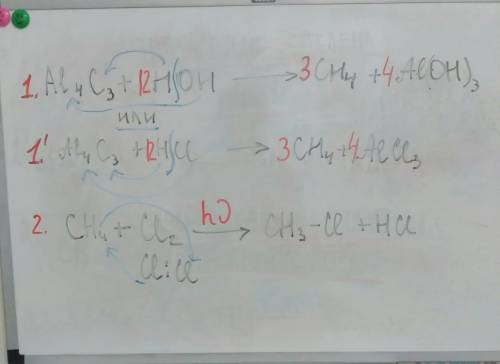 1. Al₄C₃ + 12H⌠OH → 3CH₄ + 4Al(OH)₃
или
1.' Al₄C₃ + 12H⌠Cl → 3CH₄ + 4AlCl₃
2. CH₄ + Cl₂ hν → CH₃-Cl + HCl
Cl:Cl